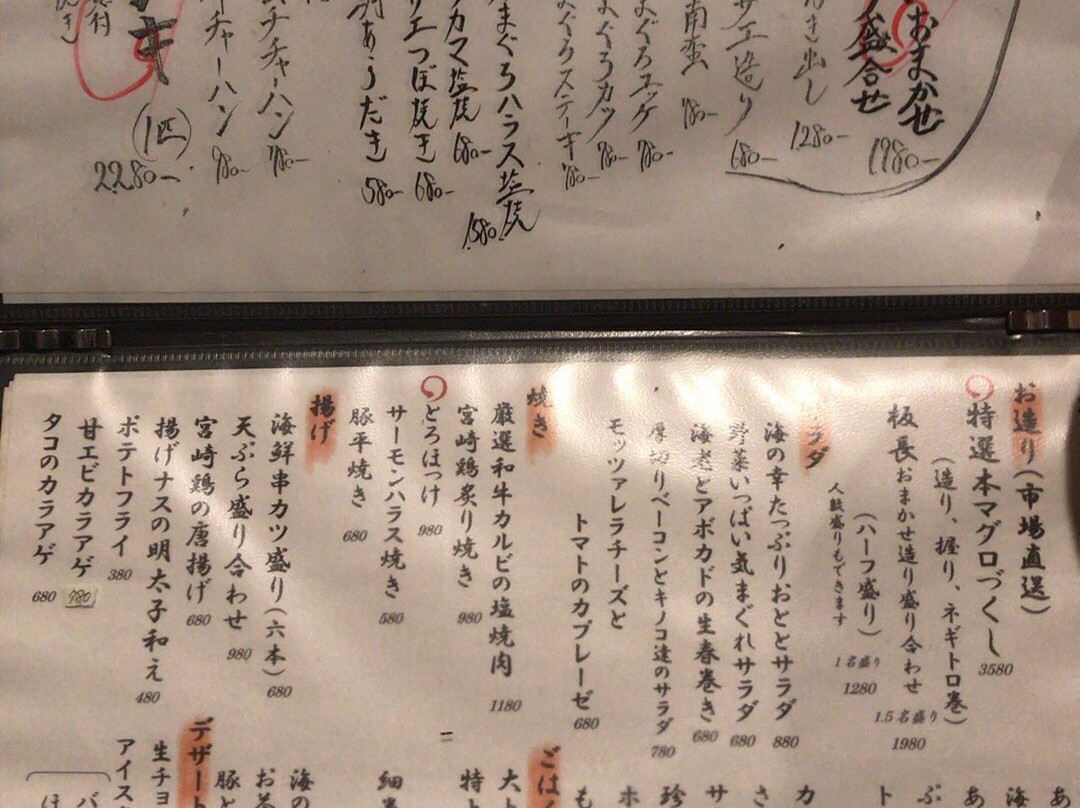 おまかせ
盛合せ
1980-
き出し
1280-
サエ造り
680-
南蛮
780-
まぐろユッケ
780-
まぐろカツ
780-
まぐろステーキ
780-
まぐろハラス塩焼
1580-
カマ塩焼
680-
サエつぼ焼き
680-
あらだき
580-
チャーハン
780-
チャーハン
980-
(1匹)
2280-
お造り(市場直送)
特選本マグロづくし
3580
(造り、握り、ネギトロ巻)
板長おまかせ造り盛り合わせ
1.5名盛り
1980
(ハーフ盛り)
1名盛り
1280
人数盛りもできます
ラダ
海の幸たっぷりおととサラダ
880
野菜いっぱい気まぐれサラダ
680
海老とアボカドの生春巻き
680
厚切りベーコンとキノコ達のサラダ
780
モッツァレラチーズと
トマトのカプレーゼ
680
焼き
厳選和牛カルビの塩焼肉
1180
宮崎鶏炙り焼き
980
とろほっけ
980
サーモンハラス焼き
580
豚平焼き
680
揚げ
海鮮串カツ盛り(六本)
680
天ぷら盛り合わせ
980
宮崎鶏の唐揚げ
680
揚げナスの明太子和え
480
ポテトフライ
380
甘エビカラアゲ
780
タコのカラアゲ
680
あ
海
あ
ぷ
ト
カ
さ
サ
珍
ホ
も
ごは
大ト
特ト
細巻
海の
お茶
豚と
デザート
生チョ
アイス
バ
ほ